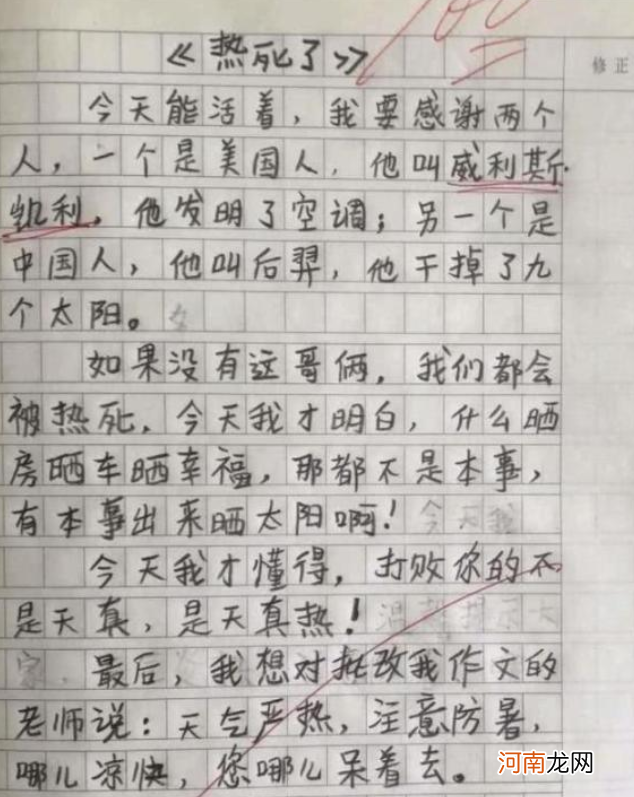 100
《热死了》
修正
今天能活着，我要感谢两个
人，一个是美国人，他叫威利斯·
凯利，他发明了空调；另一个是
中国人，他叫后羿，他干掉了九
个太阳。
如果没有这哥俩，我们都会
被热死，今天我才明白，什么晒
房晒车晒幸福，那都不是本事，
有本事出来晒太阳啊！今天我
今天我才懂得，打败你的不
是天真，是天真热！温馨提示大
家，最后，我想对批改我作文的
老师说：天气严热，注意防暑，
哪儿凉快，您哪儿呆着去。
河南龙网